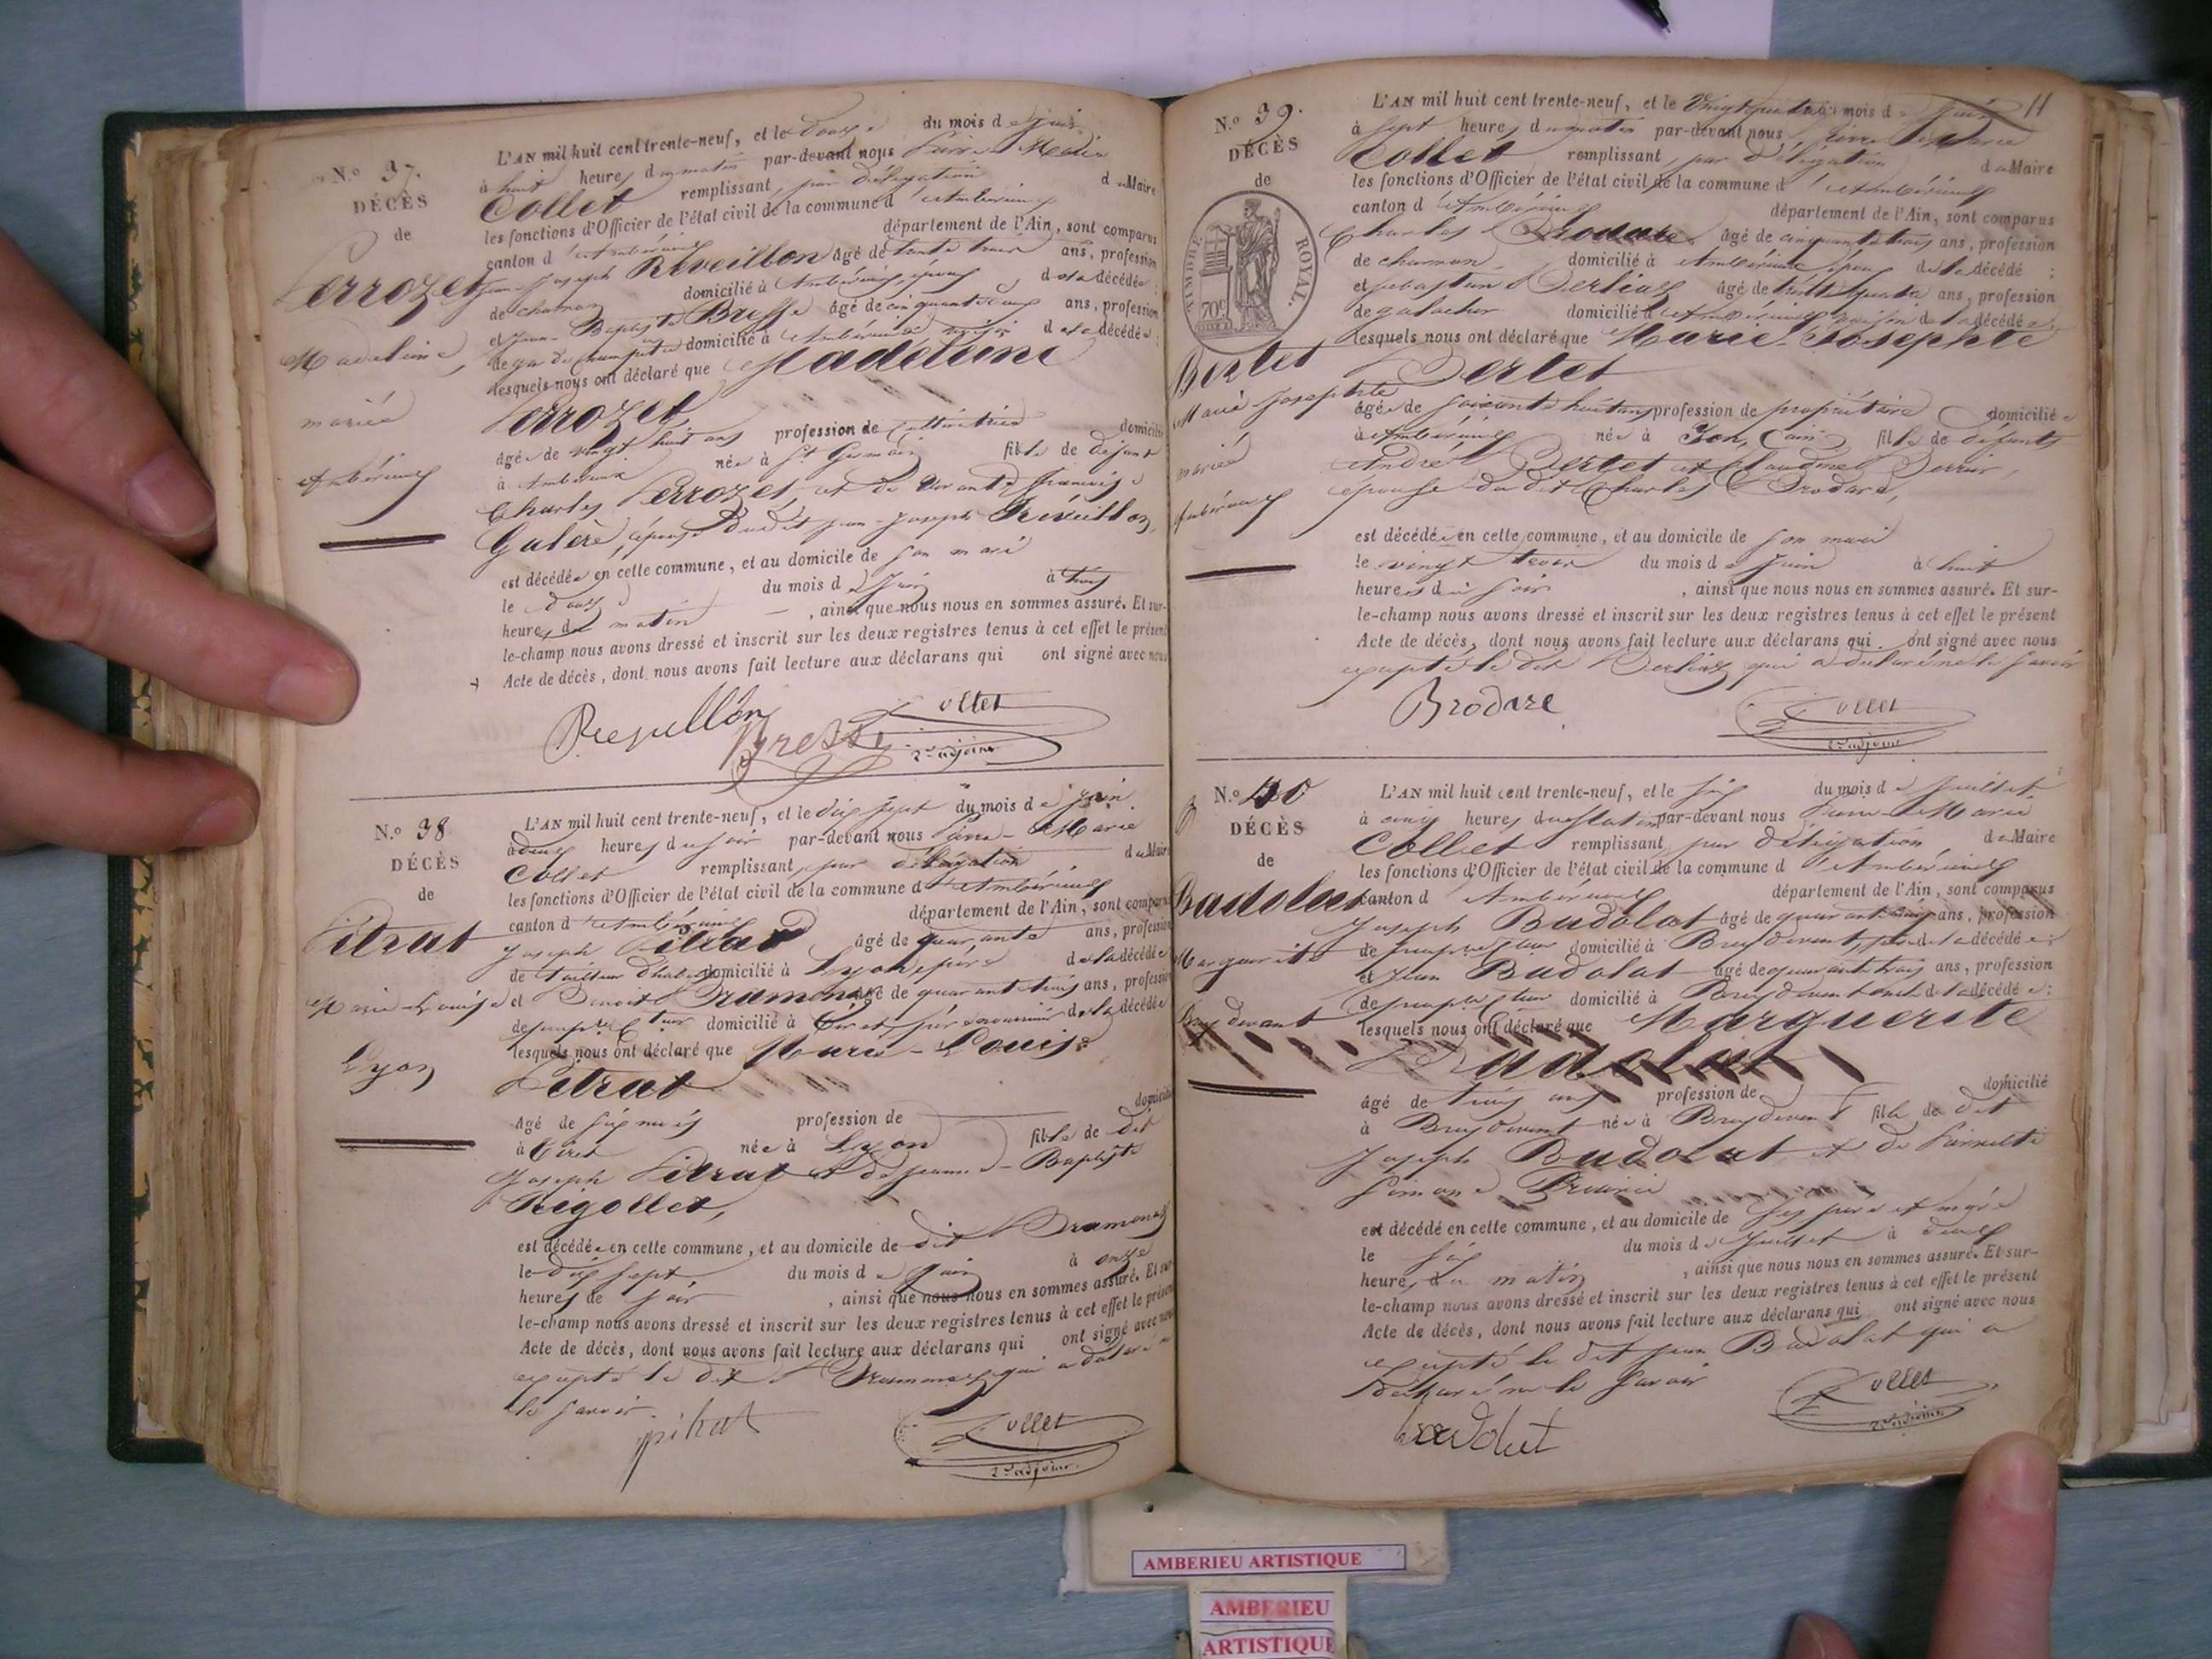 N.o 37.
DÉCÈS
de
Perrozet
Madeleine,
mariée
Ambérieux
L'AN mil huit cent trente-neuf, et le douze du mois de juin
à huit heures du matin par-devant nous Pierre Marie
Collet remplissant, par délégation du Maire
les fonctions d'Officier de l'état civil de la commune d'Ambérieux
canton d'Ambérieux département de l'Ain, sont comparus
Jean-Joseph Réveillon âgé de trente trois ans, profession
de domicilié à Ambérieux, époux de la décédée
et Jean-Baptiste Bresse âgé de cinquante ans, profession
de garde champêtre domicilié à Ambérieux voisin de la décédée;
lesquels nous ont déclaré que Madeleine
Perrozet,
âgée de vingt huit ans profession de cultivatrice domicilié
à Ambérieux née à St Germain fille de défunt
Charles Perrozet, et de vivante françoise
Galère, épouse dudit Jean-Joseph Réveillon,
est décédée en cette commune, et au domicile de son mari
le douze du mois de Juin à trois
heures du matin, ainsi que nous nous en sommes assuré. Et sur-
le-champ nous avons dressé et inscrit sur les deux registres tenus à cet effet le présent
Acte de décès, dont nous avons fait lecture aux déclarans qui ont signé avec nous
Bresse Collet
2e adjoint
N.o 38.
DÉCÈS
de
Pitrat
Marie-Louise
Lyon
L'AN mil huit cent trente-neuf, et le dix sept du mois de juin
à deux heures du soir par-devant nous Pierre-Marie
Collet remplissant, par délégation du Maire
les fonctions d'Officier de l'état civil de la commune d'Ambérieux
canton d'Ambérieux département de l'Ain, sont comparus
Joseph Pitrat âgé de quarante ans, profession
de tailleur d'habits domicilié à Lyon père de la décédée
et Benoit Dramonez âgé de quarante trois ans, profession
de domicilié à Tiret, père nourricier de la décédée
lesquels nous ont déclaré que Marie-Louise
Pitrat
âgé de six mois profession de domicilié
à Tiret née à Lyon fille de dit
Joseph Pitrat et de Jeanne-Baptiste
Rigollet,
est décédée en cette commune, et au domicile de dit
le dix sept du mois de juin à onze
heures de soir, ainsi que nous nous en sommes assuré. Et sur-
le-champ nous avons dressé et inscrit sur les deux registres tenus à cet effet le présent
Acte de décès, dont nous avons fait lecture aux déclarans qui ont signé avec nous
excepté le dit qui a déclaré ne
le savoir.
pitrat Collet
2e adjoint.
11
N.o 39.
DÉCÈS
de
TIMBRE ROYAL.
70c
Bertet
Marie Josephte
mariée
Ambérieux
L'AN mil huit cent trente-neuf, et le vingt quatre du mois de juin
à sept heures du matin par-devant nous Pierre Marie
Collet remplissant, par délégation du Maire
les fonctions d'Officier de l'état civil de la commune d'Ambérieux
canton d'Ambérieux département de l'Ain, sont comparus
Charles Brodare âgé de cinquante trois ans, profession
de domicilié à Ambérieux époux de la décédé;
et sebastien Berlioz âgé de trente quatre ans, profession
de galocher domicilié à Ambérieux voisin de la décédée
lesquels nous ont déclaré que Marie-Josephte
Bertet
âgée de soixante huit ans profession de propriétaire domiciliée
à Ambérieux née à fille de défunts
André Bertet et Claudine Perrin,
épouse dudit Charles Brodare,
est décédée en cette commune, et au domicile de son mari
le vingt trois du mois de Juin à huit
heures du soir, ainsi que nous nous en sommes assuré. Et sur-
le-champ nous avons dressé et inscrit sur les deux registres tenus à cet effet le présent
Acte de décès, dont nous avons fait lecture aux déclarans qui ont signé avec nous
excepté le dit Berlioz qui a déclaré ne le savoir
Brodare Collet
2e adjoint
N.o 40
DÉCÈS
de
Badolat
Marguerite
Breydevent
L'AN mil huit cent trente-neuf, et le six du mois de juillet
à cinq heures du matin par-devant nous Pierre-Marie
Collet remplissant, par délégation du Maire
les fonctions d'Officier de l'état civil de la commune d'Ambérieux
canton d'Ambérieux département de l'Ain, sont comparus
Joseph Badolat âgé de quarante cinq ans, profession
de domicilié à Breydevent, père de la décédée;
et Jean Badolat âgé de quarante trois ans, profession
de domicilié à Breydevent oncle de la décédée;
lesquels nous ont déclaré que Marguerite
Badolat
âgé de trois ans profession de domicilié
à Breydevent née à Breydevent fille de dit
Joseph Badolat et de Pierrette
Simone
est décédé en cette commune, et au domicile de ses père et mère
le six du mois de Juillet à deux
heures du matin, ainsi que nous nous en sommes assuré. Et sur-
le-champ nous avons dressé et inscrit sur les deux registres tenus à cet effet le présent
Acte de décès, dont nous avons fait lecture aux déclarans qui ont signé avec nous
excepté le dit jean Badolat qui a
déclaré ne le savoir
badolat Collet
2e adjoint
AMBERIEU ARTISTIQUE
AMBERIEU
ARTISTIQUE